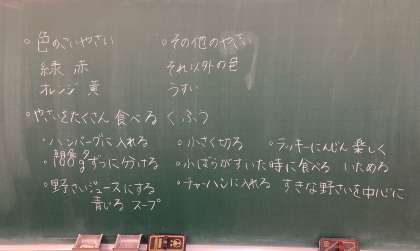 ◦色のこいやさい
緑 赤
オレンジ 黄
◦その他のやさい
それ以外の色
うすい
◦やさいをたくさん食べるくふう
・ハンバーグに入れる ・小さく切る ・ラッキーにんじん 楽しく
ずつに分ける ・小ばらがすいた時に食べる いためる
・野さいジュースにする ・チャーハンに入れる すきな野さいを中心に
青じる スープ